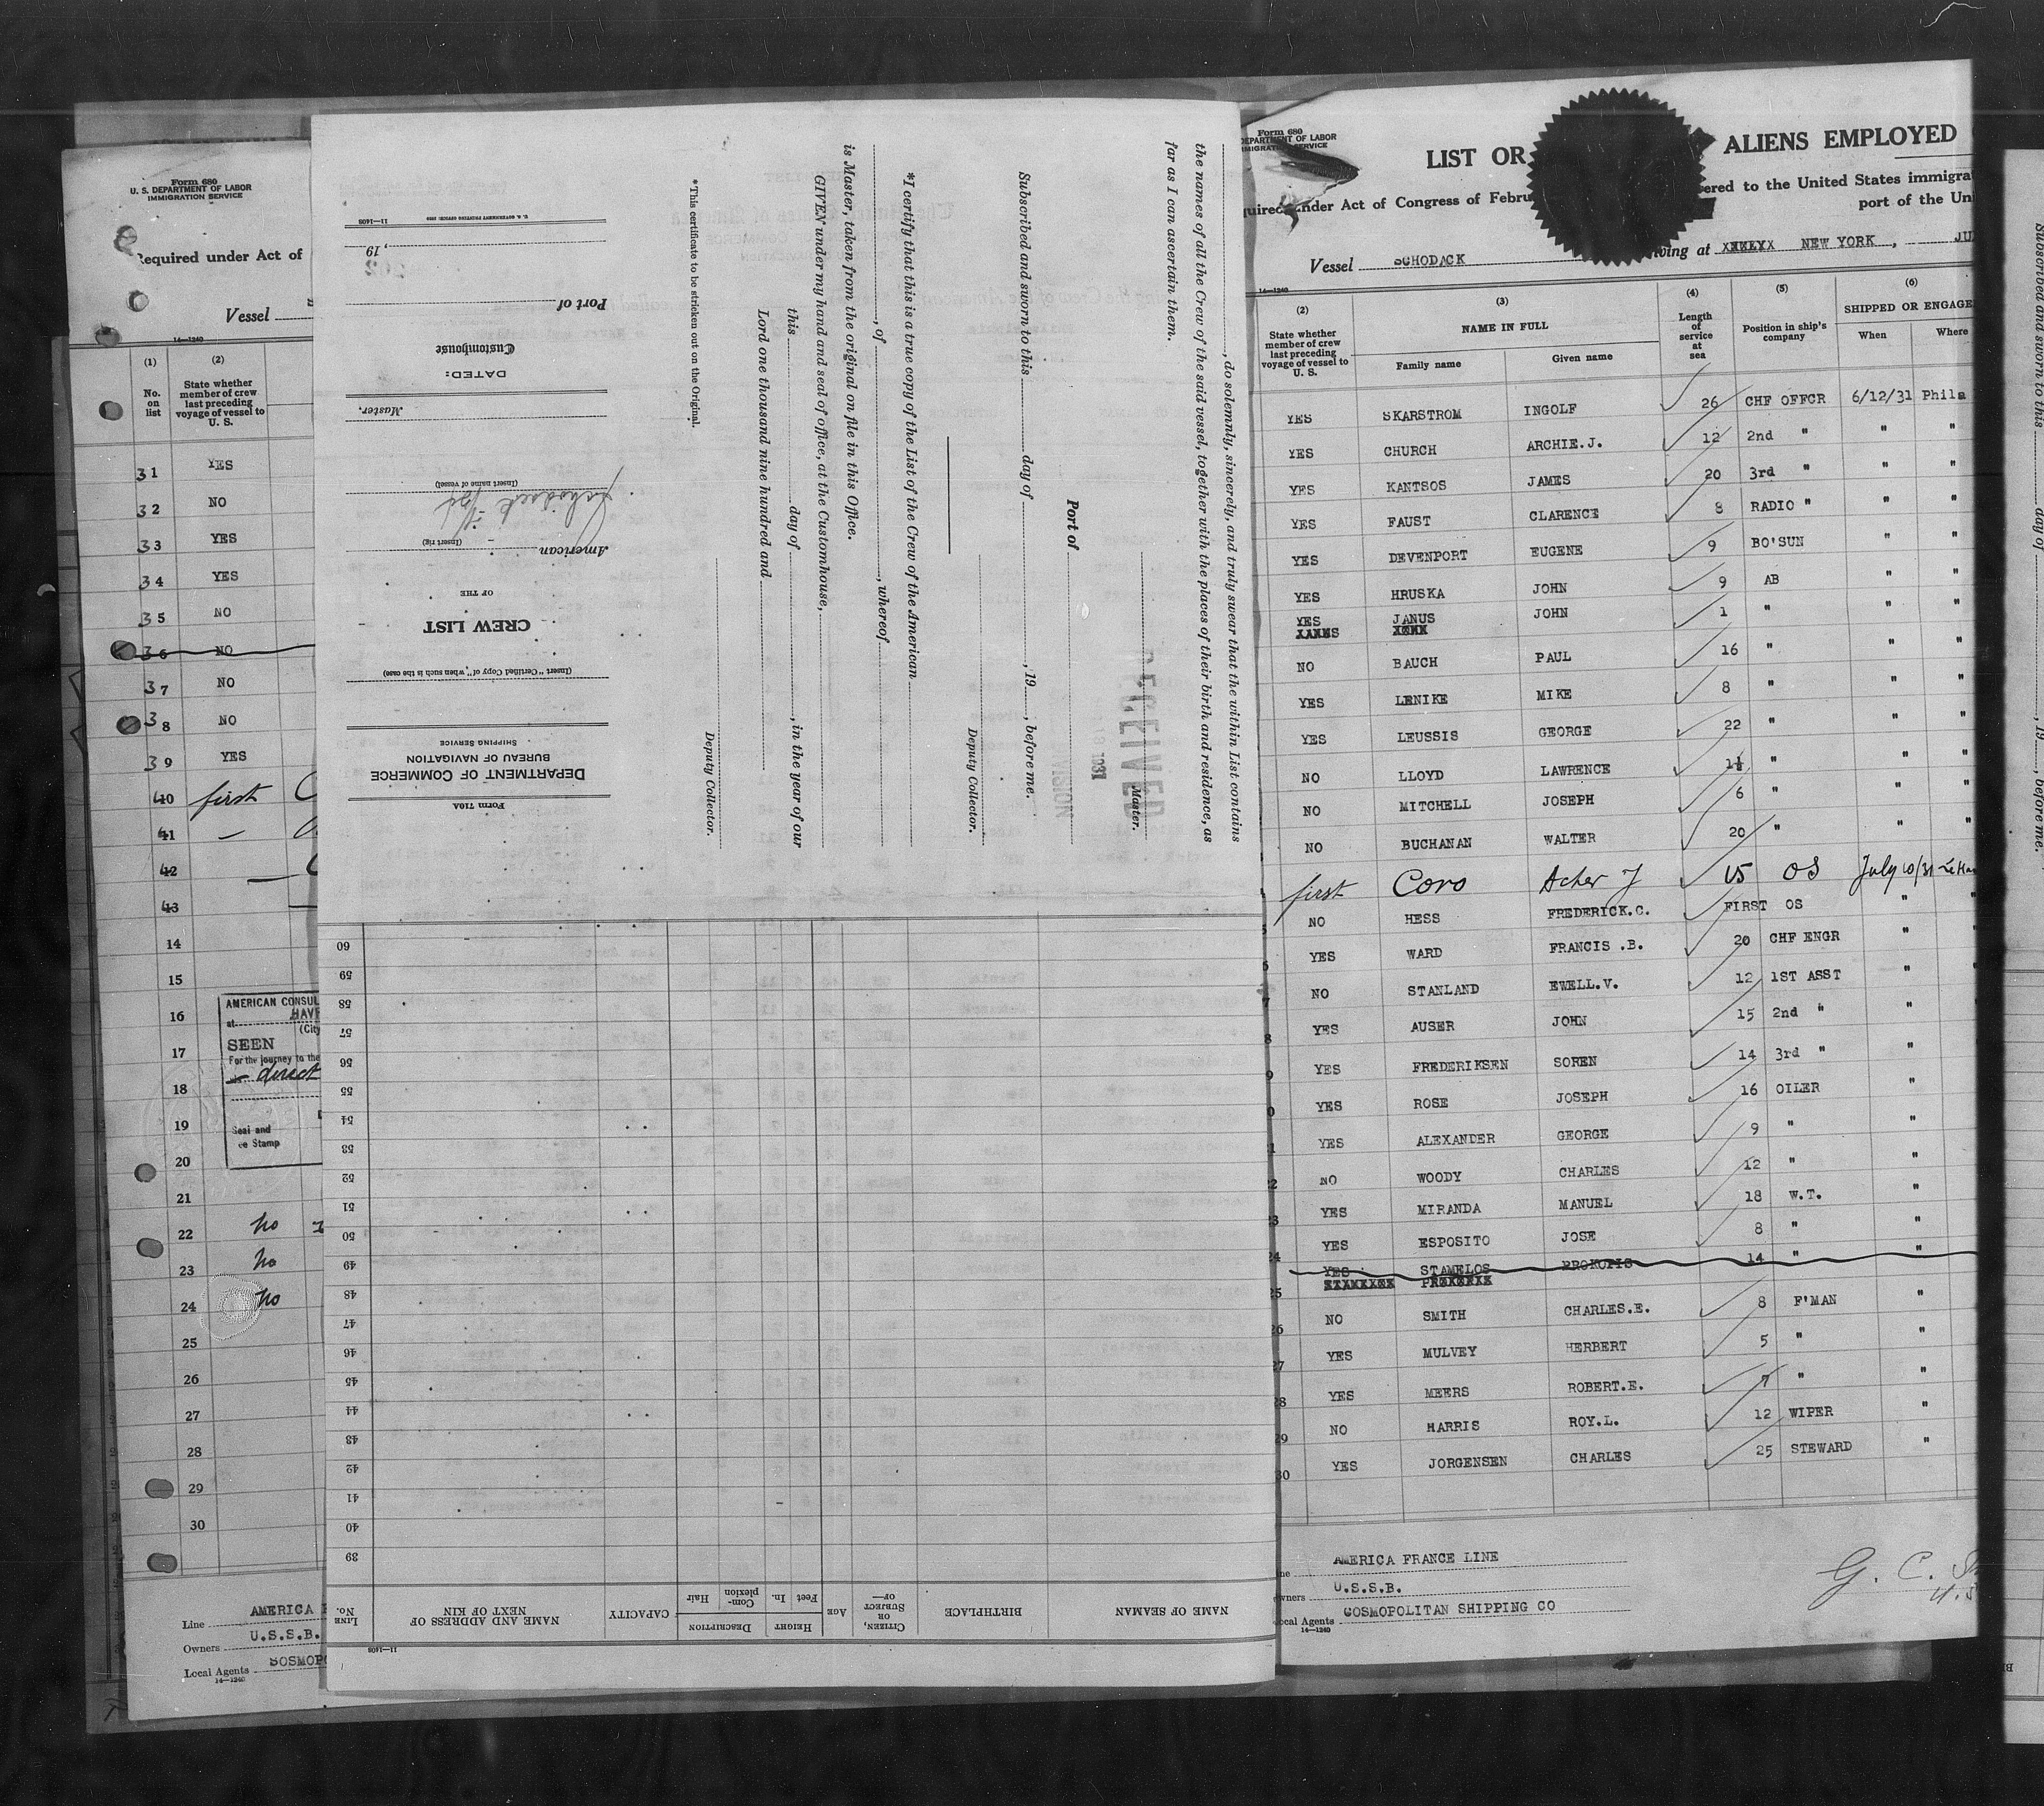 Form 680
U. S. DEPARTMENT OF LABOR
IMMIGRATION SERVICE
Required under Act of
Vessel
14—1240
(1) (2)
No. on list
State whether member of crew last preceding voyage of vessel to U. S.
31 YES
32 NO
33 YES
34 YES
35 NO
36 NO
37 NO
38 NO
39 YES
40 first
41 —
42 —
43 —
14
15
16
17
18
19
20
21
22 no
23 no
24 no
25
26
27
28
29
30
AMERICAN CONSUL
at HAVE
(City
SEEN
For the journey to the
direct
Seal and
ee Stamp
Line AMERICA F
Owners U.S.S.B.
Local Agents COSMOPO
14—1240
, do solemnly, sincerely, and truly swear that the within List contains
the names of all the Crew of the said vessel, together with the places of their birth and residence, as
far as I can ascertain them.
Master.
RECEIVED
1931
DIVISION
Port of
Subscribed and sworn to this day of , 19 , before me.
Deputy Collector.
*I certify that this is a true copy of the List of the Crew of the American
, of , whereof
is Master, taken from the original on file in this Office.
GIVEN under my hand and seal of office, at the Customhouse,
this day of , in the year of our
Lord one thousand nine hundred and
Deputy Collector.
*This certificate to be stricken out on the Original.
Form 710A
DEPARTMENT OF COMMERCE
BUREAU OF NAVIGATION
SHIPPING SERVICE
(Insert "Certified Copy of", when such is the case)
CREW LIST
OF THE
American
(Insert rig)
Schodack
(Insert name of vessel)
Master.
DATED:
Customhouse
Port of
, 19
U. S. GOVERNMENT PRINTING OFFICE: 1929
11—1408
LINE No.
NAME AND ADDRESS OF NEXT OF KIN
CAPACITY
DESCRIPTION
Hair
Complexion
HEIGHT
In.
Feet
AGE
CITIZEN, OR SUBJECT OF—
BIRTHPLACE
NAME OF SEAMAN
39
40
41
42
43
44
45
46
47
48
49
50
51
52
53
54
55
56
57
58
59
60
11—1408
Form 680
DEPARTMENT OF LABOR
IMMIGRATION SERVICE
LIST OR ALIENS EMPLOYED
quired under Act of Congress of Febru ered to the United States immigrat
port of the Un
Vessel SCHODACK iving at NEW YORK , JU
14—1240
(2) (3) (4) (5) (6)
State whether member of crew last preceding voyage of vessel to U. S.
NAME IN FULL
Family name Given name
Length of service at sea
Position in ship's company
SHIPPED OR ENGAGE
When Where
YES SKARSTROM INGOLF 26 CHF OFFCR 6/12/31 Phila
YES CHURCH ARCHIE.J. 12 2nd " " "
YES KANTSOS JAMES 20 3rd " " "
YES FAUST CLARENCE 8 RADIO " " "
YES DEVENPORT EUGENE 9 BO'SUN " "
YES HRUSKA JOHN 9 AB " "
YES JANUS JOHN 1 " " "
NO BAUCH PAUL 16 " " "
YES LENIKE MIKE 8 " " "
YES LEUSSIS GEORGE 22 " " "
NO LLOYD LAWRENCE " " "
NO MITCHELL JOSEPH 6 " " "
NO BUCHANAN WALTER 20 " " "
first Coro Acher J 15 OS July 10/31 Le Hav
NO HESS FREDERICK.C. FIRST OS "
YES WARD FRANCIS .B. 20 CHF ENGR "
NO STANLAND EWELL.V. 12 1ST ASST "
YES AUSER JOHN 15 2nd " "
YES FREDERIKSEN SOREN 14 3rd " "
YES ROSE JOSEPH 16 OILER "
YES ALEXANDER GEORGE 9 " "
NO WOODY CHARLES 12 " "
YES MIRANDA MANUEL 18 W.T. "
YES ESPOSITO JOSE 8 " "
YES STAMELOS PROKOPIS 14 " "
NO SMITH CHARLES.E. 8 F'MAN "
YES MULVEY HERBERT 5 " "
YES MEERS ROBERT.E. 7 " "
NO HARRIS ROY.L. 12 WIPER "
YES JORGENSEN CHARLES 25 STEWARD "
ine AMERICA FRANCE LINE
wners U.S.S.B.
ocal Agents COSMOPOLITAN SHIPPING CO
14—1240
G. C.
Subscribed and sworn to this day of , 19 , before me.